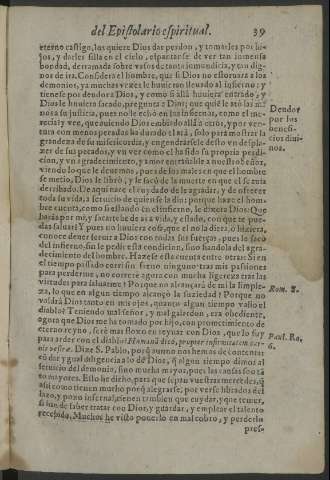 del Epistolario espiritual. 39
eterno castigo, las quiere Dios dar perdon, y tomarles por hi-
jos, y darles silla en el cielo, espantarse de ver tan inmensa
bondad, derramada sobre vasos de tanta inmundicia, y tan dig-
nos de ira. Considera el hombre, que si Dios no estoruara a los
demonios, ya muchas vezes le huuieran lleuado al infierno; y
tienese por deudor a Dios, y como si allà huuiera entrado, y
Dios le huuiera sacado, pregunta a Dios; que
nosa su justicia, pues no le echò en los infiernos, como el me-
recia? y vee, que auiendo Dios embiado allà a otros, y por ven-
tura con menos pecados ha durado el acà, solo para mostrar la
grandeza de su misericordia, y engendrarsele desto vn despla-
zer de sus pecados, y en ver como el ha sido su propria perdi-
cion, y vn agradecimiento, y amor entrañable a nuestro señor,
viendo lo que le deuemos, pues de los males en que el hombre
se metio, Dios le librò, y le sacò de la muerte en que el se auia
derribado. De aqui nace el cuydado de le agradar, y de ofrecer
toda su vida, a seruicio de quien se la dio: porque haze el hom-
bre cuenta, como si estando en el infierno, le dixera Dios: Que
haràs por mi, y sacarte he de ai a vida, y estado, con que te pue-
das saluar? Y pues no huuiera cosa, que el no la diera, ò hiziera,
conoce deuer seruir a Dios con todas sus fuerças, pues le sacò
del infierno, sin le pedir esta condicion, sino fiandola del agra-
decimiento del hombre. Hazese esta cuenta entre otras: Si en
el tiempo passado corri sin freno ninguno tras mis passiones
para perderme, no correrè agora con mucha ligereza tras las
virtudes para saluarme? Porque no alcançarà de mi la limpie-
za, lo que en algun tiempo alcançò la suziedad? Porque no
valdrà Dios tanto en mis ojos, quanto algun tiempo valio el
diablo? Teniendo mal señor, y mal galardon, era obediente,
agora que Dios me ha tomado por hijo, con prometimiento de
eterno reyno, serè mas floxo en reynar con Dios, que lo fuy
para arder con el diablo? Humanũ dico, propter infirmitatem car-
nis vestræ. Dize S. Pablo, porq̃ aun no nos hemos de contentar
cõ dar y gual diligencia alo de Dios, q̃ algun tiempo dimos al
seruicio del demonio, sino mucha mayor, pues las causas son tã
to mayores. Esto he dicho, para que sepan vuestras mercedes, q̃
assi como tienen mucho porq̃ alegrarse, por verse librados del
lazo, y pozo infernal, tienen tambien que cuydar, que tener,
si han de saber tratar con Dios, y guardar, y emplear el talento
recebido. Muchos he visto ponerlo en mal cobro, y perderlo
pres-
Deudor
por los
benefi-
cios diui-
nos.
Rom. 8.
Paul. Ro.
6.